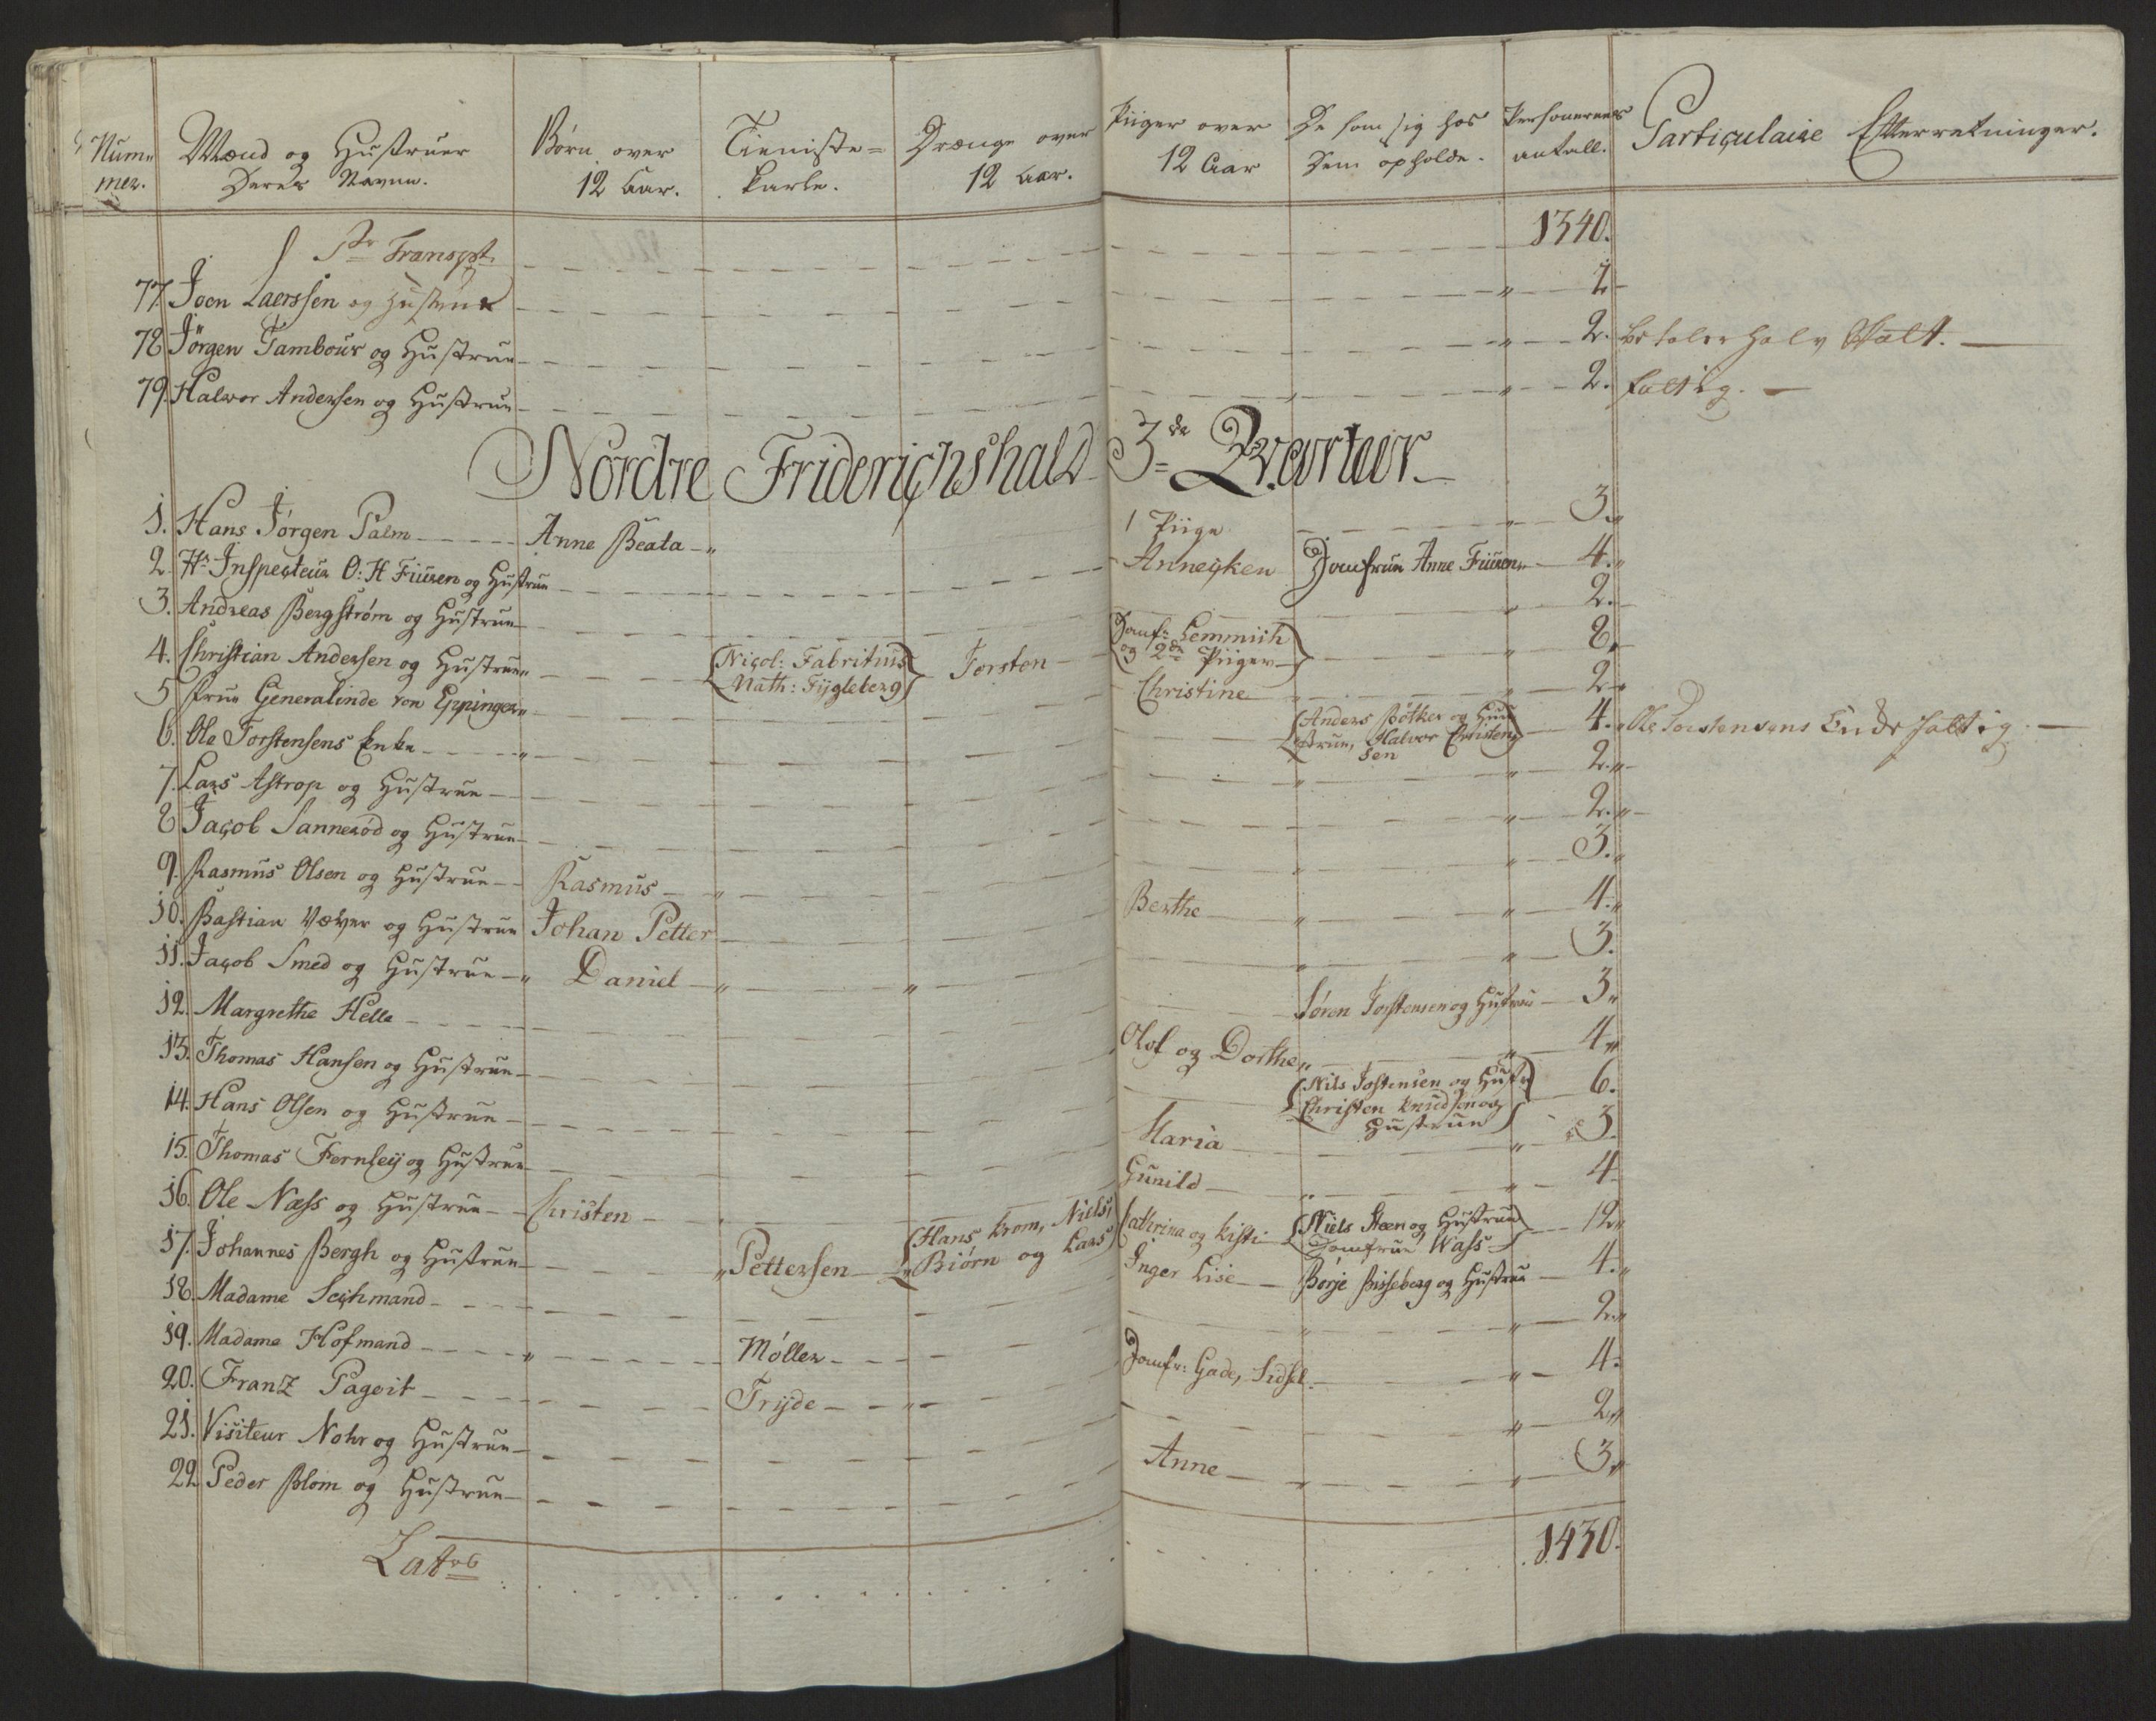 Num„ mer. Mænd og Hustruer Deres Navne. Børn over 12 Aar. Tieniste= Karle. Drænge over 12 Aar. Piiger over 12 Aar De som sig hos Dem opholde. Personernes antall. Particulaire Efterretninger.
Pr Transpt 1340.
77. Joen Laerssen og Hustrue 2
78 Jörgen Tambour og Hustrue 2. betaler halv Skatt.
79. Halvor Andersen og Hustrue 2. fattig.
Nordre Friderichshald 3de Qvarteer
1. Hans Jörgen Palm Anne Beata 1 Piige 3.
2. Hr Inspecteur O: H Fiuren og Hustrue Annecken Jomfrue Anne Fiuren 4.
3. Andreas Bergstrøm og Hustrue 2.
4. Christian Andersen og Hustrue (Nicol: Fabritius Nath: Fijgleberg) Torsten Jomfr: Lemmich og 2de Piiger 8.
5 Frue Generalinde von Eppinger Christine 2
6. Ole Torstensens Enke (Anders Bötker og Hustrue, Halvor Christensen 4. Ole Torstensens Enke fattig.
7. Lars Astrop og Hustrue 2.
8 Jacob Sannerød og Hustrue 2.
9. Rasmus Olsen og Hustrue Rasmus 3.
10. Bastian Væver og Hustrue Johan Petter Berthe 4.
11. Jacob Smed og Hustrue Daniel 3.
12. Margrethe Helle Søren Torstensen og Hustrue 3
13. Thomas Hansen og Hustrue Olof og Dorthe 4
14. Hans Olsen og Hustrue (Nils Tostensen og Hustr Christen Knudsen og Hustrue) 6.
15. Thomas Fernley og Hustrue Maria 3.
16. Ole Næss og Hustrue Christen Gunild 4
17. Johannes Bergh og Hustrue Pettersen (Hans Krom, Niels, Biørn og Lars) Cathrina og Kisti (Niels Steen og Hustrue Jomfrue Wass 12
18. Madame Sechmand Inger Lise Börje Bisseberg og Hustrue 4.
19. Madame Hofmand Möller 2.
20. Frantz Pagoit Trijde Jomfr: Gade, Sidsel 4.
21. Visiteur Nohr og Hustrue 2
22. Peder Blom og Hustrue Anne 3
Latus 1430.